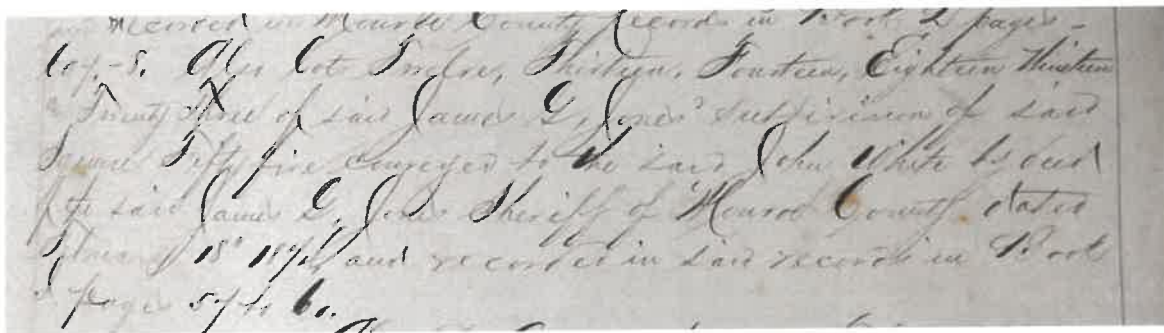 and recorded in Monroe County records in Book L pages
Also Lots Twelve, Thirteen, Fourteen, Eighteen Nineteen
Twenty three of said James G. Jones' Subdivision of said
Square Fifty five conveyed to the said John White by deed
of the said James G. Jones Sheriff of Monroe County dated
18th and recorded in said records in Book
page 57 to 60.